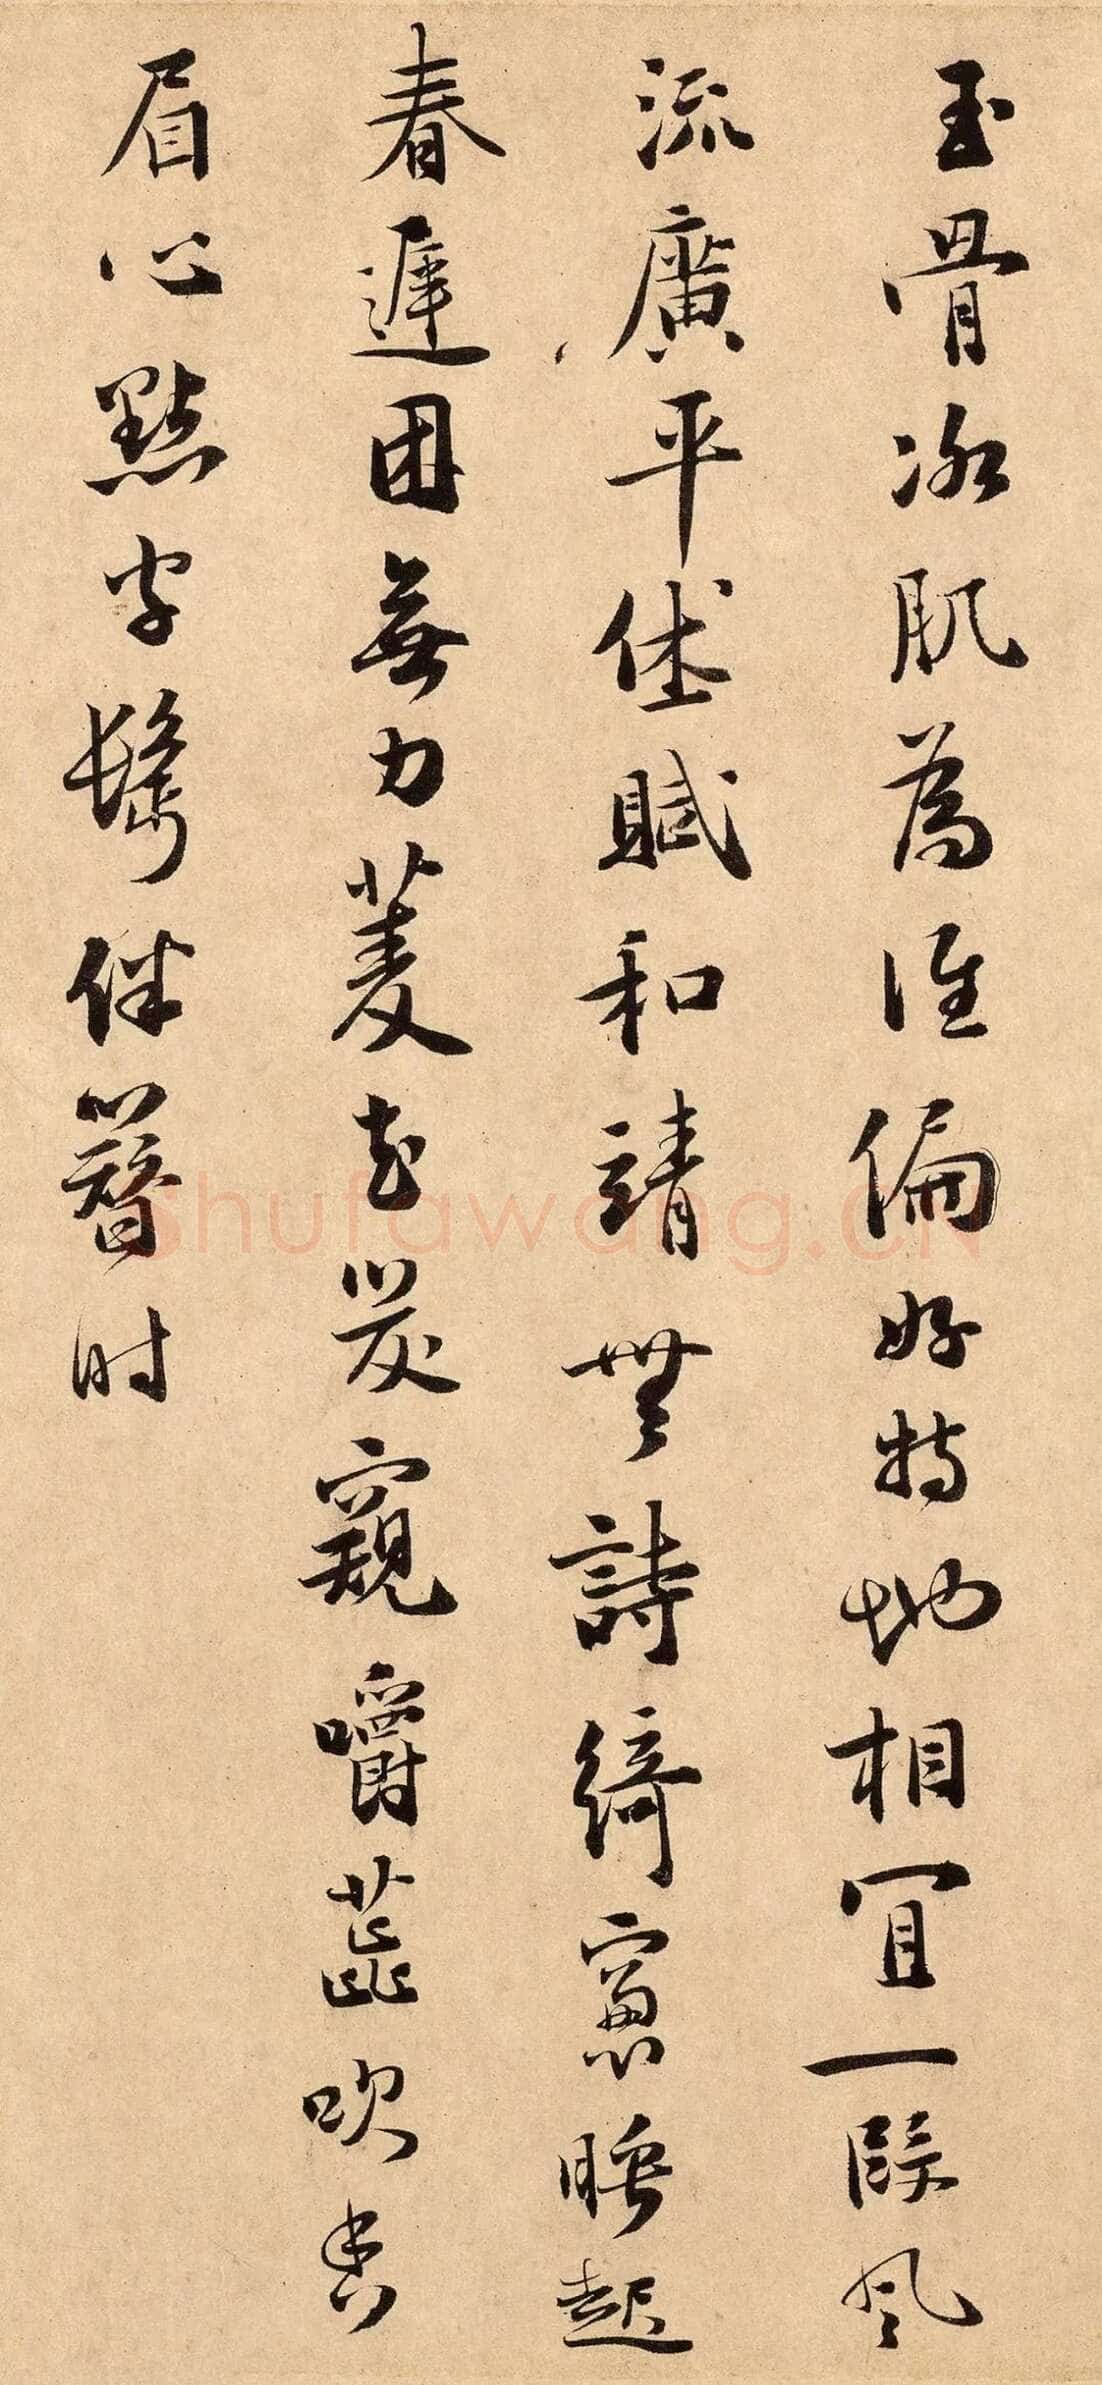 玉骨冰肌為誰偏好特地相宜一段風
流廣平休賦和靖無詩綺窗睡起
春遲困無力菱花笑窺嚼蕊吹香
眉心點字鬢伴簪时
shufawang.CN